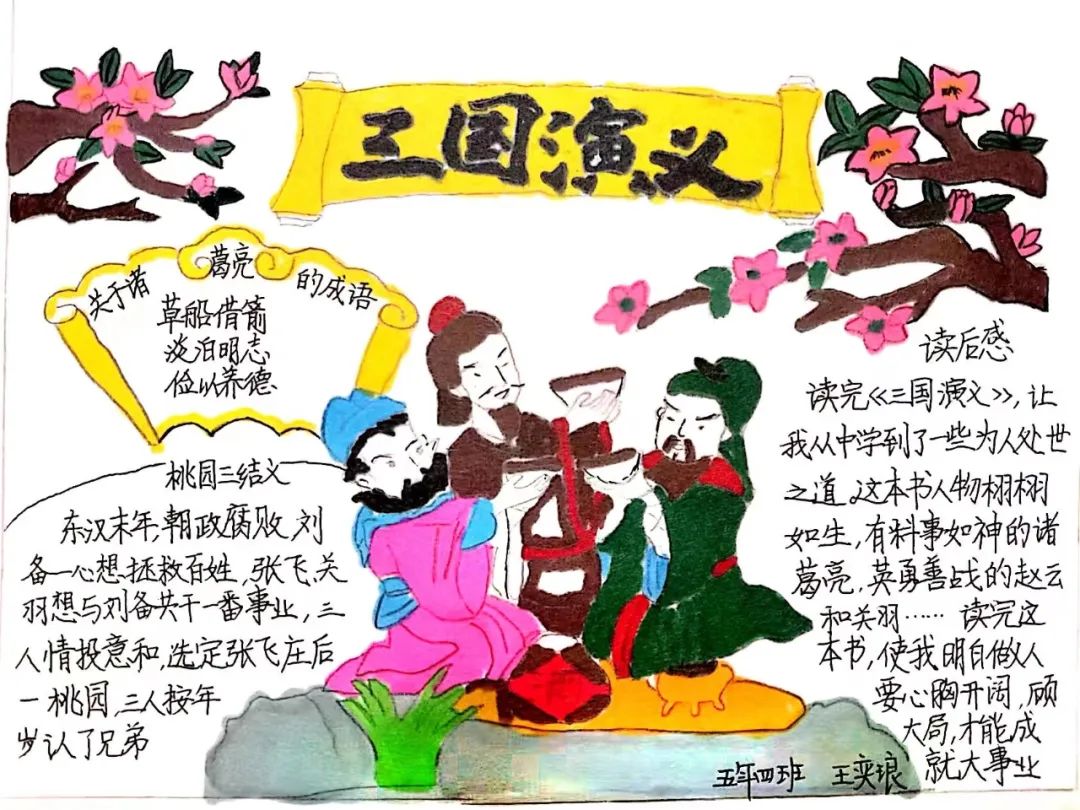 三国演义
关于诸葛亮的成语
草船借箭
淡泊明志
俭以养德
桃园三结义
东汉末年,朝政腐败,刘
备一心想拯救百姓,张飞,关
羽想与刘备共干一番事业,三
人情投意和,选定张飞庄后
一桃园,三人按年
岁认了兄弟
读后感
读完《三国演义》,让
我从中学到了一些为人处世
之道。这本书人物栩栩
如生,有料事如神的诸
葛亮,英勇善战的赵云
和关羽……读完这
本书,使我明白做人
要心胸开阔,顾
大局,才能成
就大事业
五年四班 王奕琅